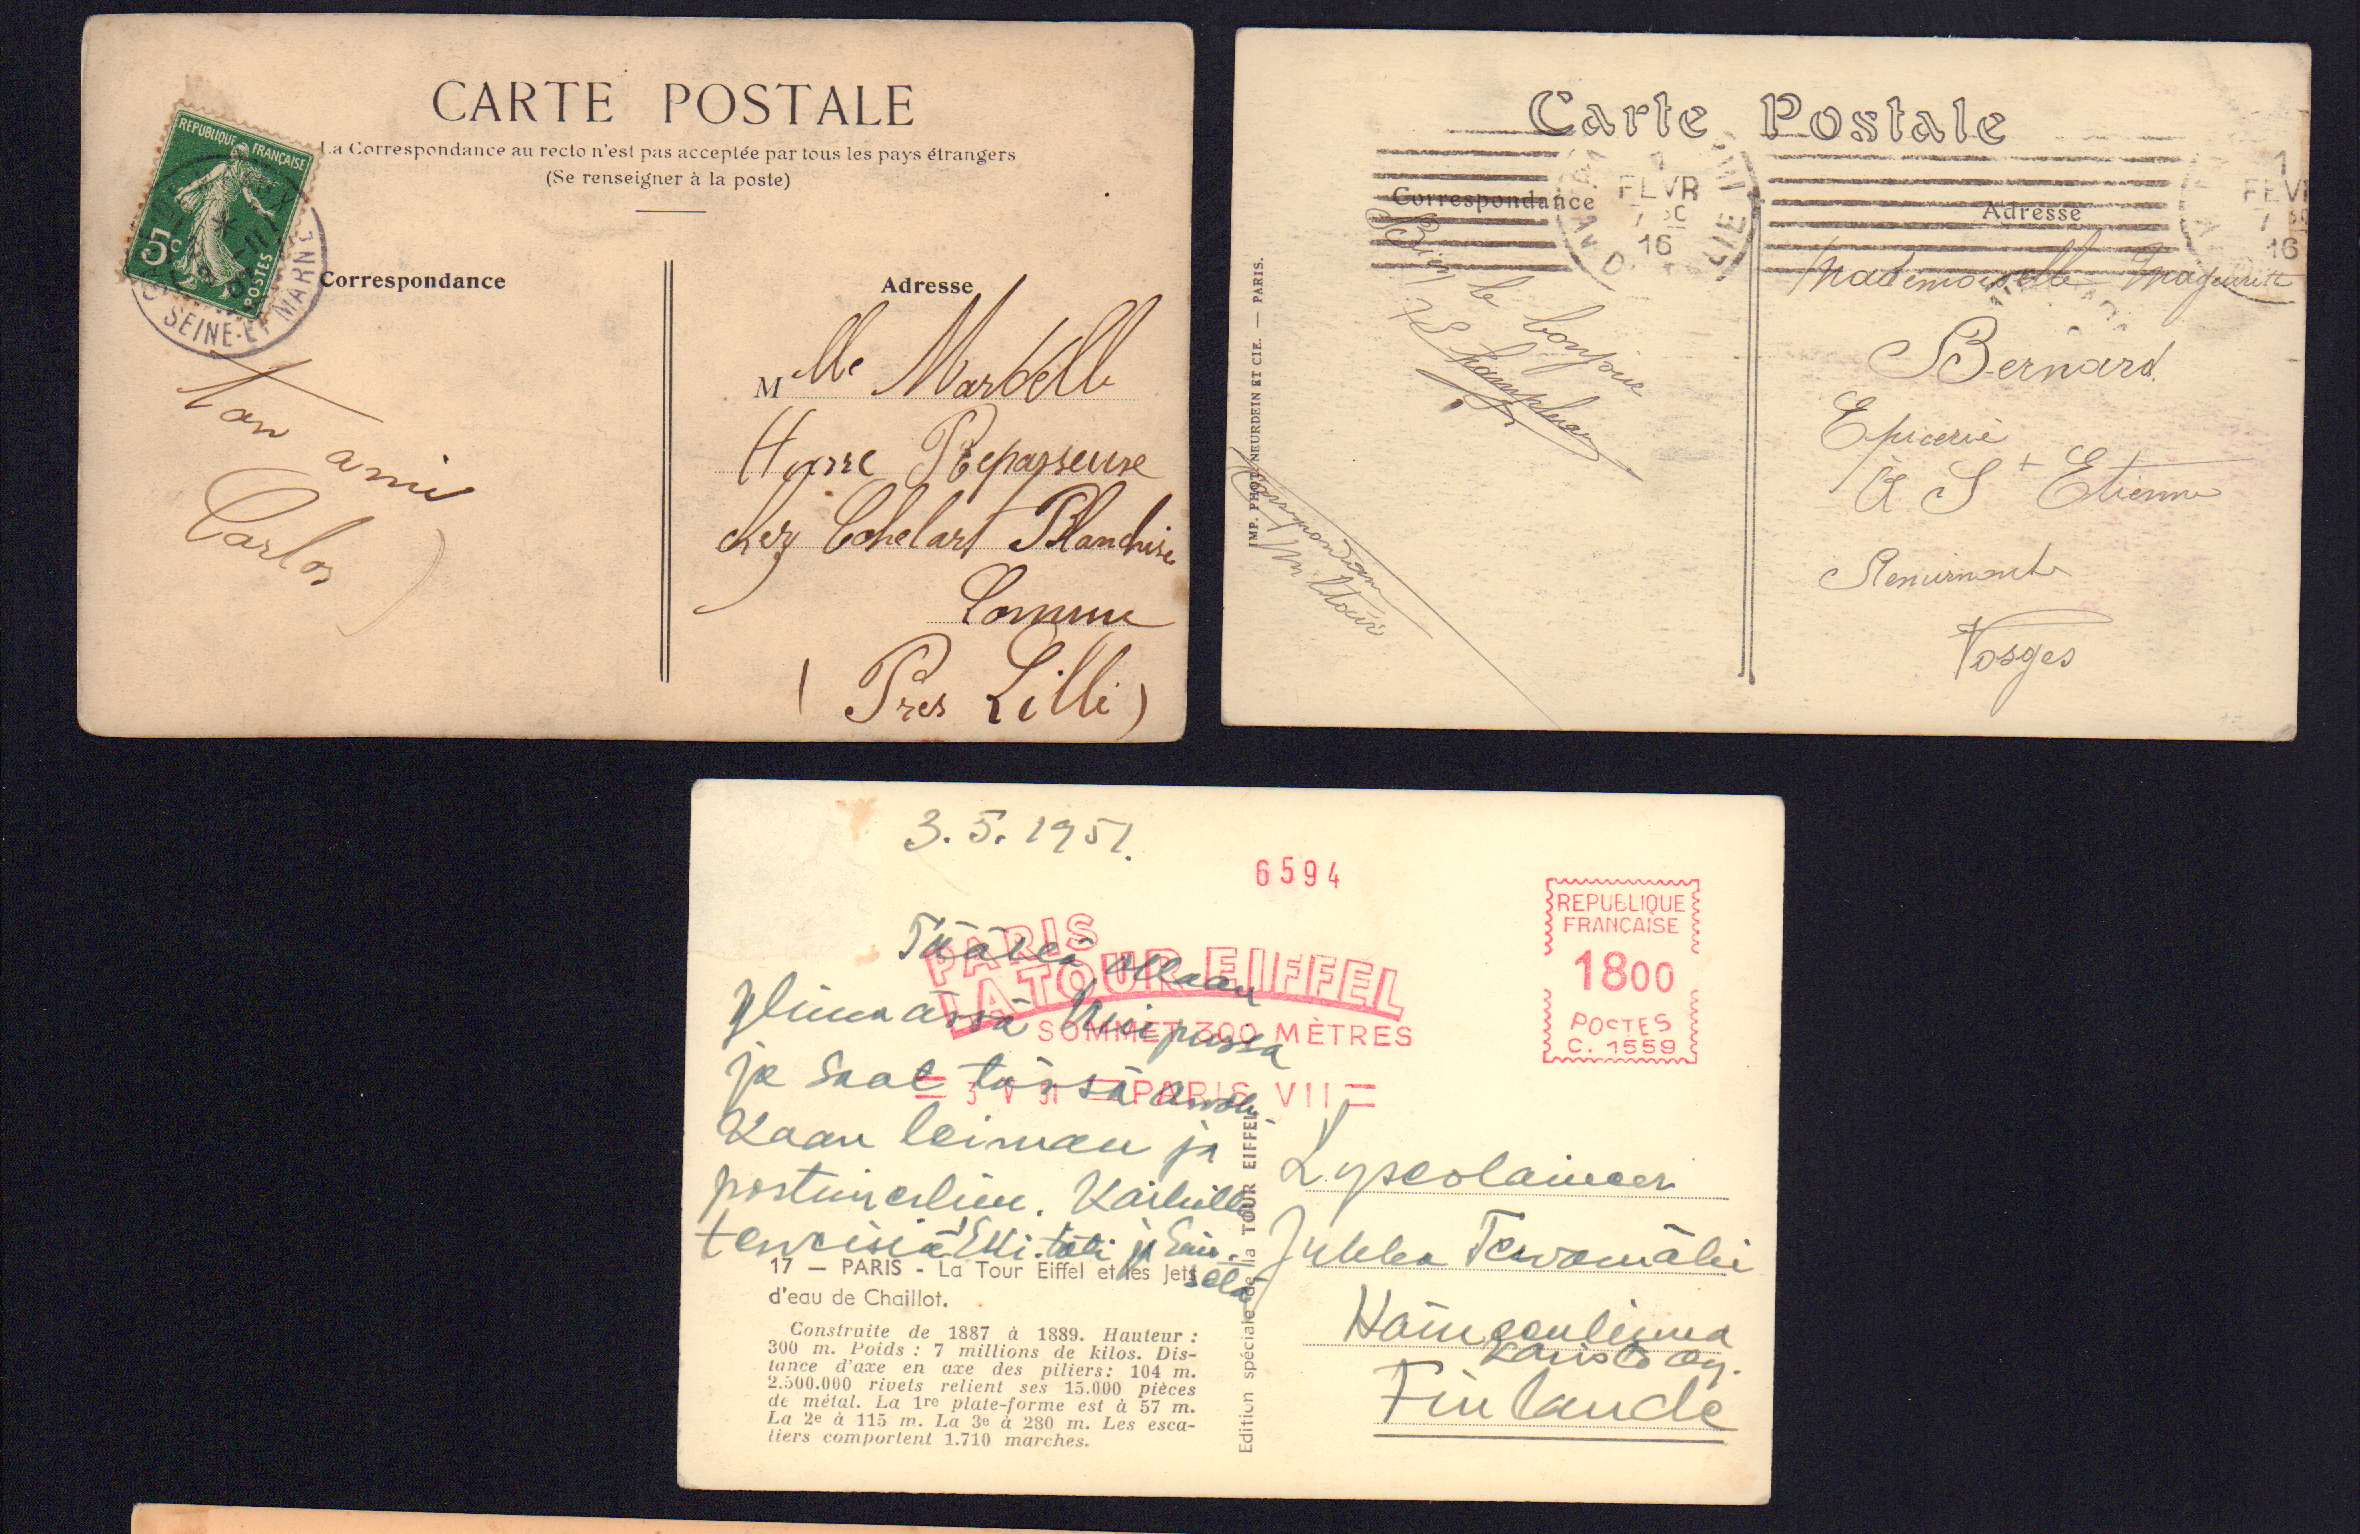 CARTE POSTALE
La Correspondance au recto n'est pas acceptée par tous les pays étrangers
(Se renseigner à la poste)
REPUBLIQUE FRANÇAISE
5c
POSTES
SEINE-ET-MARNE
Correspondance
Adresse
Ton ami
Carlos
Mlle Marbelle
Repasseuse
chez Cohelart
Lomme
(Près Lille)
Carte Postale
Correspondance
Adresse
FEVR
16
1
FEV
16
IMP. PHOT. NEURDEIN ET CIE. — PARIS.
le bonjour
Mademoiselle
Bernard
Epicerie
à St Etienne
Remiremont
Vosges
3.5.1951.
6594
PARIS
LA TOUR EIFFEL
SOMMET 300 MÈTRES
3 V 51 PARIS VII
REPUBLIQUE
FRANÇAISE
1800
POSTES
C. 1559
Täällä ollaan
ylimmässä huipussa
ja saat tässä
leiman ja
postimerkin. Kaikille
terveisiä
setä
17 — PARIS - La Tour Eiffel et les Jets
d'eau de Chaillot.
Construite de 1887 à 1889. Hauteur :
300 m. Poids : 7 millions de kilos. Dis-
tance d'axe en axe des piliers: 104 m.
2.500.000 rivets relient ses 15.000 pièces
de métal. La 1re plate-forme est à 57 m.
La 2e à 115 m. La 3e à 280 m. Les esca-
liers comportent 1.710 marches.
Edition spéciale de la TOUR EIFFEL
Lyseolainen
Jukka Tervamäki
Hämeenlinna
Karisto Oy.
Finlande